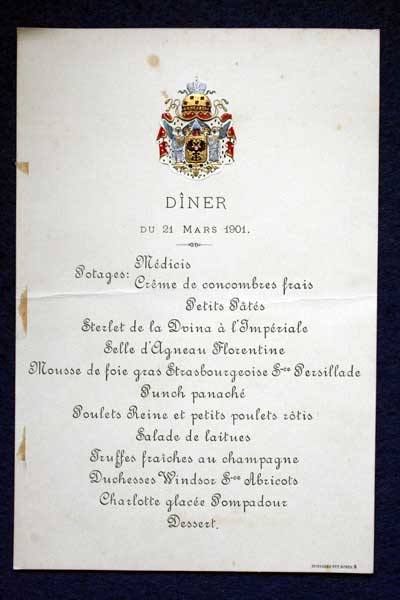 DÎNER
DU 21 MARS 1901.
Potages: Médicis
Crême de concombres frais
Petits Pâtés
Sterlet de la Dvina à l'Impériale
Selle d'Agneau Florentine
Mousse de foie gras Strasbourgeoise Sce Persillade
Punch panaché
Poulets Reine et petits poulets rôtis
Salade de laitues
Truffes fraîches au champagne
Duchesses Windsor Sce Abricots
Charlotte glacée Pompadour
Dessert.